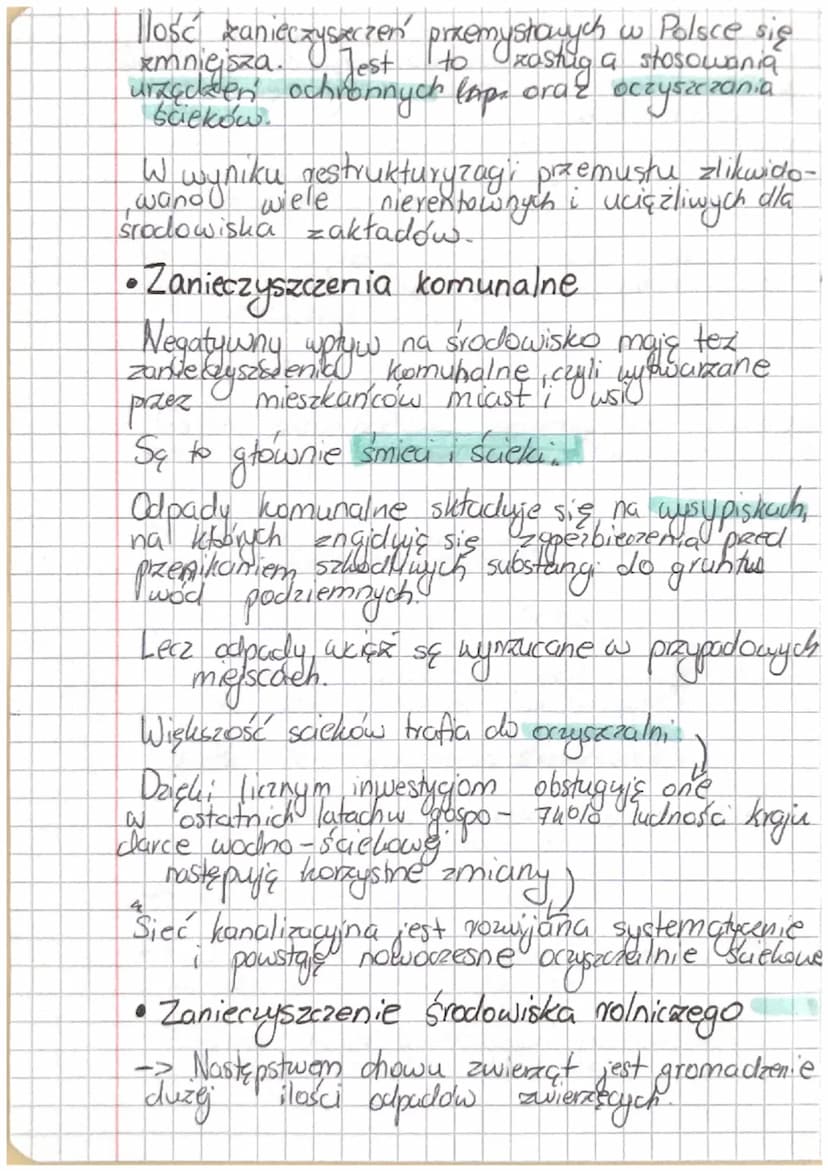 Ilość zanieczyszczeń przemysłowych w Polsce się
zmniejsza. Jest to zasługa stosowania
urządzeń ochronnych (np. oraz oczyszczania
ścieków.
W wyniku restrukturyzacji przemysłu zlikwido-
wano wiele nierentownych i uciążliwych dla
środowiska zakładów.
• Zanieczyszczenia komunalne
Negatywny wpływ na środowisko mają też
zanieczyszczenia komunalne, czyli wytwarzane
przez mieszkańców miast i wsi
Są to głównie śmieci i ścieki.
Odpady komunalne składuje się na wysypiskach,
na których znajdują się zabezpieczenia przed
przenikaniem szkodliwych substancji do gruntu
i wód podziemnych.
Lecz odpady wciąż są wyrzucane w przypadowych
miejscach.
Większość scieków trafia do oczyszczalni
Dzięki licznym inwestycjom obsługują one
w ostatnich latach w gospo- 74% ludności kraju
darce wodno-ściekowej
następują korzystne zmiany
Sieć kanalizacyjna jest rozwijana systematycznie
i powstają nowoczesne oczyszczalnie ściekowe
• Zanieczyszczenie środowiska rolniczego
-> Następstwem chowu zwierząt jest gromadzenie
dużej ilości odpadów zwierzęcych.